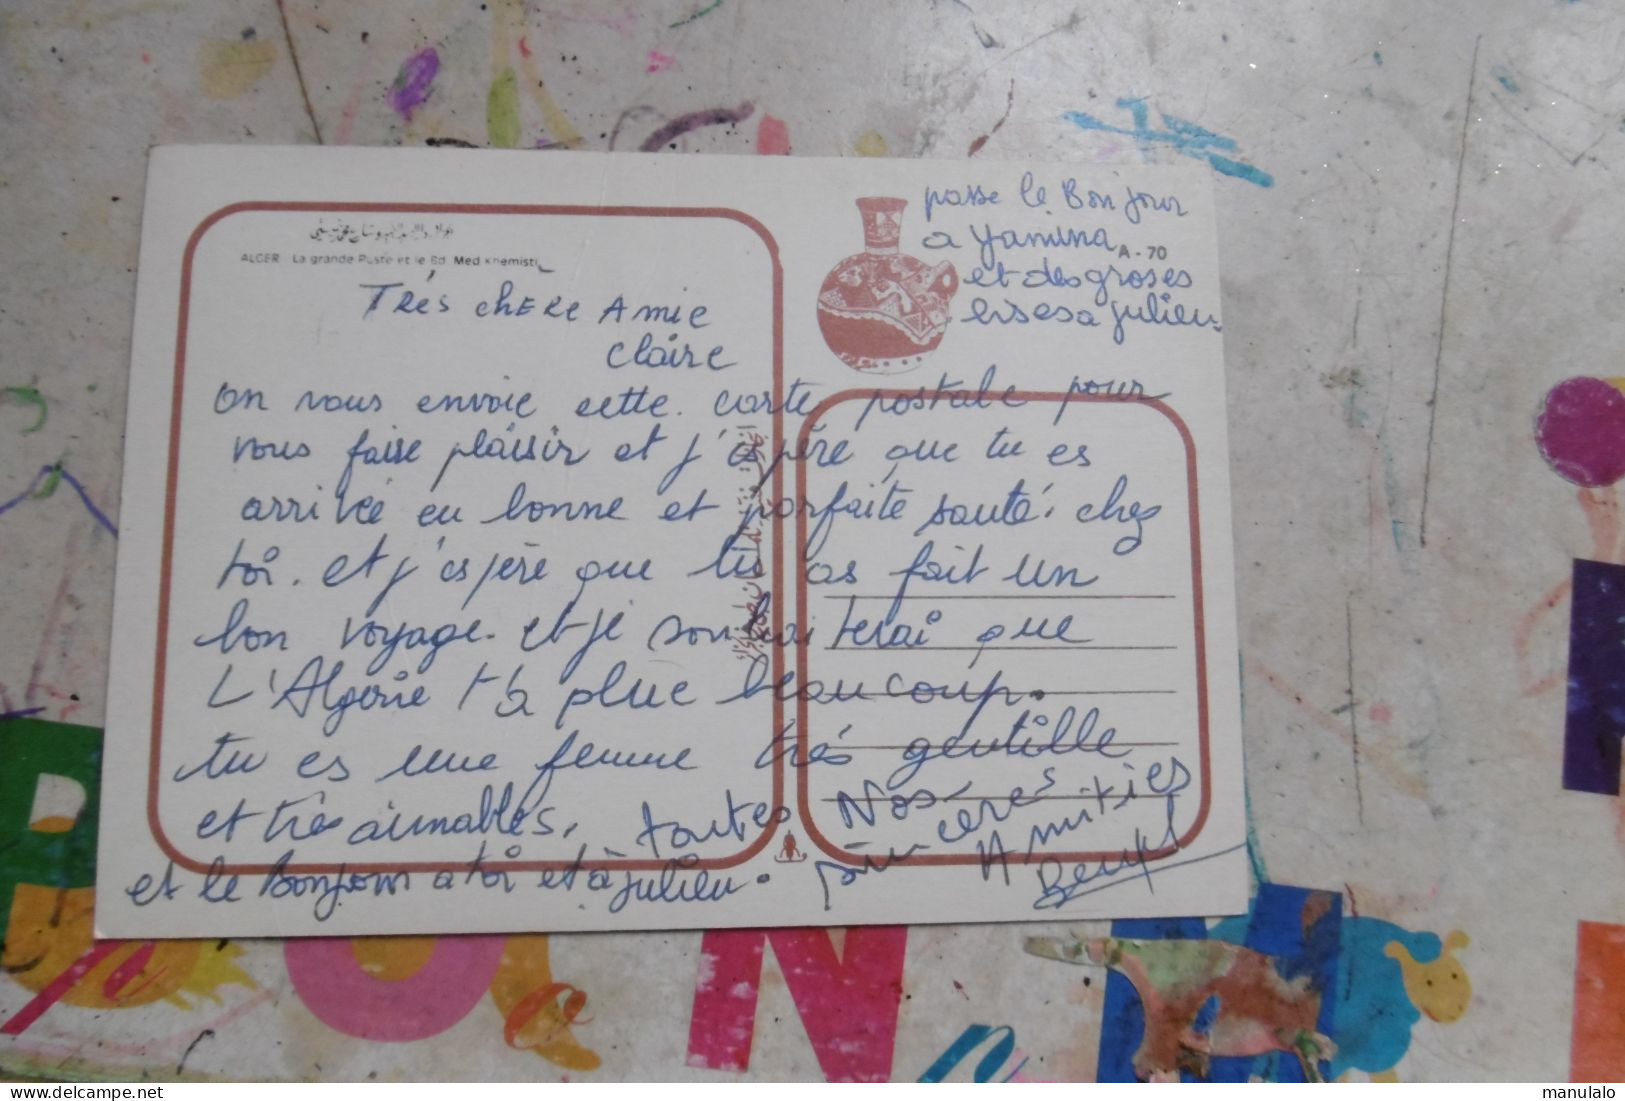 passe le Bonjour
a Yamina
A - 70
et des groses
bises a julien.
ALGER La grande Poste et le Bd Med Khemisti
Trés chere Amie
Claire
on vous envoie cette carte postale pour
vous faise plaisir et j'espère que tu es
arrivée en bonne et parfaite santé. chez
toi. et j'espère que tu as fait un
bon voyage. et je souhaiterai que
L'Algerie t'à plue beaucoup.
tu es une femme trés gentille
et trés aimables. toutes Nos
sincères Amitiés
et le Bonjour a toi et à julien.
delcampe.net
manulalo